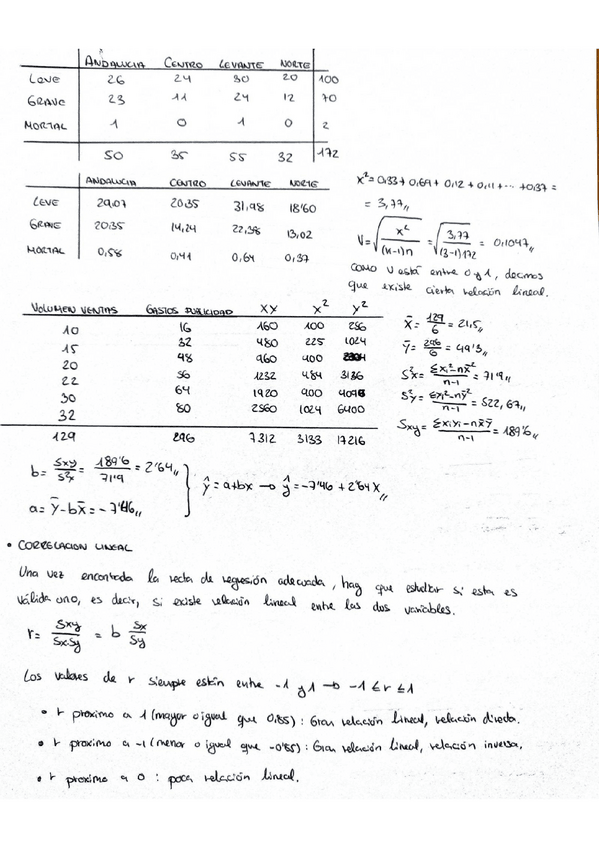 ANDALUCIA CENTRO LEVANTE NORTE
LEVE 26 24 30 20 100
GRAVE 23 11 24 12 70
MORTAL 1 0 1 0 2
50 35 55 32 172
ANDALUCIA CENTRO LEVANTE NORTE
LEVE 29,07 20'35 31,98 18'60
GRAVE 20'35 14,24 22,38 13,02
MORTAL 0,58 0,41 0,64 0,37
x²= 0,33 + 0,69 + 0,12 + 0,11 + ... + 0,37 =
= 3,77,,
V = √(x²/((k-1)n)) = √(3,77/((3-1)172)) = 0,1047,,
COMO V está entre 0 y 1, decimos
que existe cierta relación lineal.
VOLUMEN VENTAS GASTOS PUBLICIDAD XY X² Y²
10 16 160 100 256
15 32 480 225 1024
20 48 960 400 2304
22 56 1232 484 3136
30 64 1920 900 4096
32 80 2560 1024 6400
129 296 7312 3133 17216
X̄ = 129/6 = 21,5,,
Ȳ = 296/6 = 49'3,,
S²x = (Σxi²-nx̄²)/(n-1) = 71'9,,
S²y = (Σyi²-nȳ²)/(n-1) = 522,67,,
Sxy = (Σxiyi-nx̄ȳ)/(n-1) = 189'6,,
b = Sxy/S²x = 189'6/71'9 = 2'64,,
a = Ȳ - bX̄ = -7'46,,
ŷ = a+bx → ŷ = -7'46 + 2'64X,,
• CORRELACION LINEAL
Una vez encontrada la recta de regresión adecuada, hay que estudiar si esta es
válida o no, es decir, si existe relación lineal entre las dos variables.
r = Sxy/(Sx.Sy) = b Sx/Sy
Los valores de r siempre están entre -1 y 1 → -1 ≤ r ≤ 1
• r proximo a 1 (mayor o igual que 0,85): Gran relación lineal, relación directa.
• r proximo a -1 (menor o igual que -0'85): Gran relación lineal, relación inversa.
• r proximo a 0 : poca relación lineal.